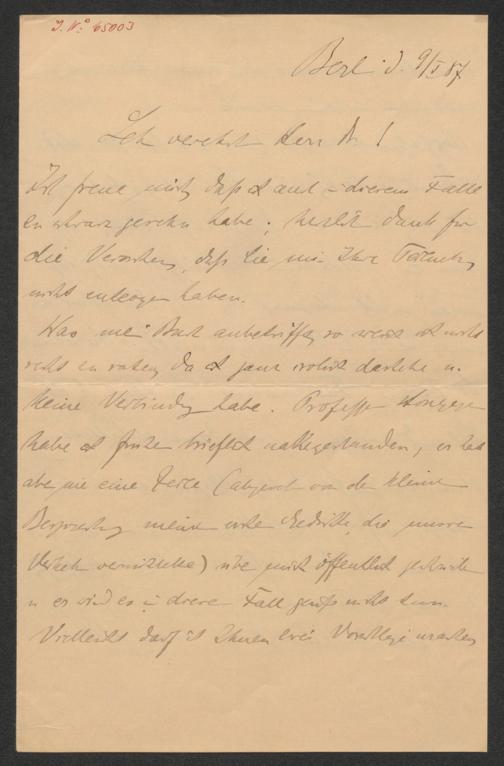 J. N. 65003
Berlin d. 9/I 87.
Sehr verehrter Herr Dr!
Ich freue mich, daß ich auch in diesem Falle
zu schwarz gesehen habe; herzlich Dank für
die Versicherung, daß Sie mir Ihre
nicht entzogen haben.
Was mein Buch anbetrifft, so weiß ich nicht
recht zu raten, da ich ganz isolirt dastehe u.
keine Verbindung habe. Professor
habe ich früher brieflich nahegestanden, er hat
aber nie eine Zeile (abgesehen von der kleinen
Besprechung meiner ersten Gedichte, die unsern
Verkehr vermittelte) über mich öffentlich geschrieben
u. er wird es in diesem Fall gewiß nicht tun.
Vielleicht darf ich Ihnen zwei Vorschläge machen,